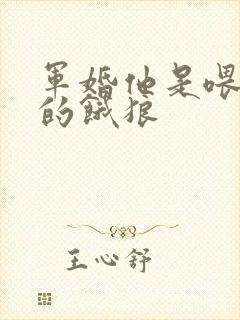 軍婚他是喂
的餓狼
王心舒